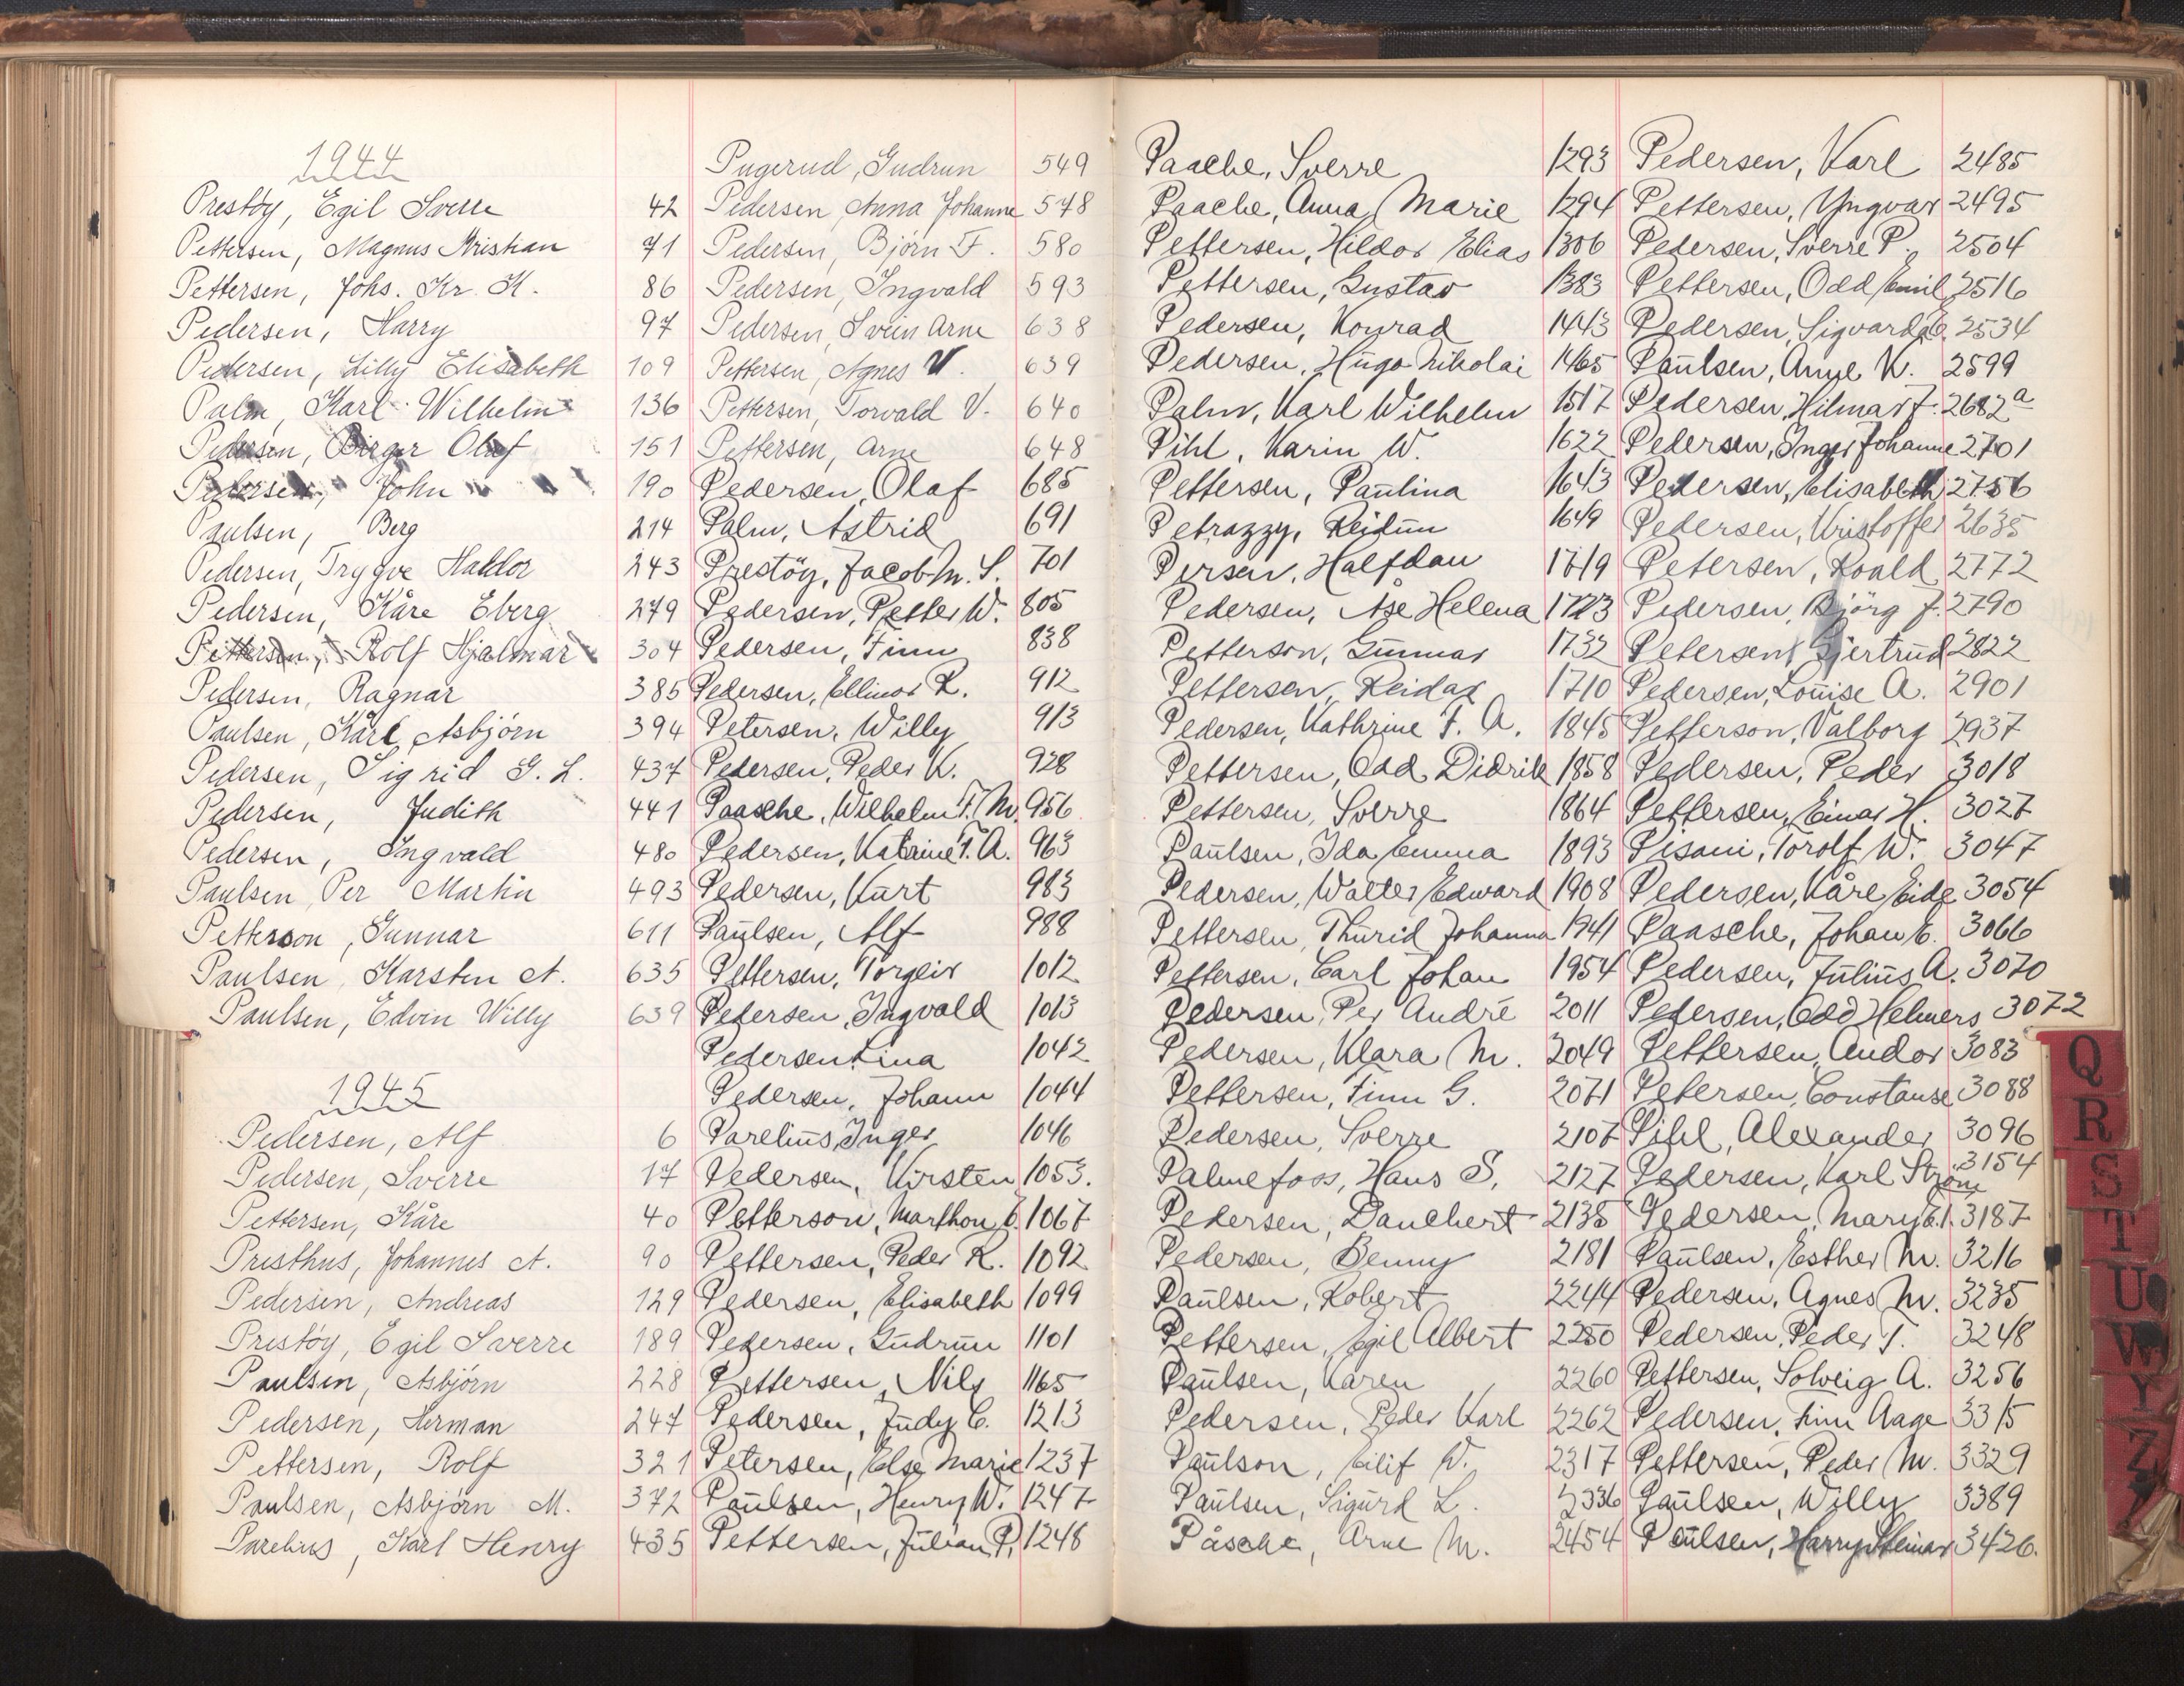 1944
Prestöy, Egil Sverre 42
Pettersen, Magnus Kristian 71
Pettersen, Johs. Kr. K. 86
Pedersen, Harry 97
Pedersen, Lilly Elisabeth 109
Palm, Karl Wilhelm 136
Pedersen, Birger Olaf 151
Pedersen, John 190
Paulsen, Berg 214
Pedersen, Trygve Haldor 243
Pedersen, Kåre Eberg 279
Pettersen, Rolf Hjalmar 304
Pedersen, Ragnar 385
Paulsen, Kårl Asbjörn 394
Pedersen, Sigrid G. L. 437
Pedersen, Judith 441
Pedersen, Ingvald 480
Paulsen, Per Martin 493
Petterson, Gunnar 611
Paulsen, Karsten A. 635
Paulsen, Edvin Willy 639
1945
Pedersen, Alf 6
Pedersen, Sverre 17
Pettersen, Kåre 40
Presthus, Johannes A. 90
Pedersen, Andreas 129
Prestöy, Egil Sverre 189
Paulsen, Asbjörn 228
Pedersen, Herman 247
Pettersen, Rolf 321
Paulsen, Asbjörn M. 372
Parelius, Karl Henry 435
Pugerud, Gudrun 549
Pedersen, Anna Johanne 578
Pedersen, Bjórn F. 580
Pedersen, Ingvald 593
Pedersen, Svein Arne 638
Pettersen, Agnes V. 639
Pettersen, Torvald V. 640
Pettersen, Arne 648
Pedersen, Olaf 685
Palm, Astrid 691
Prestöy, Jacob M. S. 701
Pedersen, Petter W. 805
Pedersen, Finn 838
Pedersen, Ellinor R. 912
Petersen, Willy 913
Pedersen, Peder K. 928
Paasche, Wilhelm F. M. 956
Pedersen, Katrine F. A. 963
Pedersen, Kurt 983
Paulsen, Alf 988
Pettersen, Torgeir 1012
Pedersen, Ingvald 1013
Pedersen Lina 1042
Pedersen, Johann 1044
Parelius, Inger 1046
Pedersen, Kirsten 1053.
Petterson, Marthon E. 1067
Pettersen, Peder R. 1092
Pedersen, Elisabeth 1099
Pedersen, Gudrun 1101
Pettersen, Nils 1165
Pedersen, Judy C. 1213
Petersen, Else Marie 1237
Paulsen, Henry W. 1247
Pettersen, Julian P. 1248
Paache, Sverre 1293
Paache, Anna Marie 1294
Pettersen, Hildor Elias 1306
Pettersen, Gustav 1383
Pedersen, Konrad 1443
Pedersen, Hugo Nikolai 1465
Palm, Karl Wilhelm 1517
Pihl, Karin W. 1622
Pettersen, Paulina 1643
Petrazzy, Reidun 1649
Persen, Halfdan 1719
Pedersen, Åse Helena 1723
Petterson, Gunnar 1732
Pettersen, Reidar 1710
Pedersen, Kathrine F. A. 1845
Pettersen, Odd Didrik 1858
Pettersen, Sverre 1864
Paulsen, Ida Emma 1893
Pedersen, Walter Edward 1908
Pettersen, Thurid Johanna 1941
Pettersen, Carl Johan 1954
Pedersen, Per André 2011
Pedersen, Klara M. 2049
Pettersen, Finn G. 2071
Pedersen, Sverre 2107
Palmefoss, Hans S. 2127
Pedersen, Danchert 2135
Pedersen, Benny 2181
Paulsen, Robert 2244
Pettersen, Egil Albert 2250
Paulsen, Karen 2260
Pedersen, Peder Karl 2262
Paulson, Eilif W. 2317
Paulsen, Sigurd L. 2336
Påsche, Arne M. 2454
Pedersen, Karl 2485
Pettersen, Yngvar 2495
Pedersen, Sverre P. 2504
Pettersen, Odd Emil 2516
Pedersen, Sigvarda E. 2534
Paulsen, Anne K. 2599
Pedersen, Hilmar F. 2682 a
Pedersen, Inger Johanne 2701
Pedersen, Elisabeth 2756
Pedersen, Kristoffer 2635
Petersen, Roald 2772
Pedersen, Bjórg J. 2790
Petersen, Gjertrud 2822
Pedersen, Louise A. 2901
Petterson, Valborg 2937
Pedersen, Peder 3018
Pettersen, Einar H. 3027
Pisani, Torolf W. 3047
Pedersen, Kåre Eide 3054
Paasche, Johan E. 3066
Pedersen, Julius A. 3070
Pedersen, Odd Helmers 3072
Pettersen, Andor 3083
Petersen, Constanse 3088
Pihl, Alexander 3096
Pedersen, Karl Ström 3154
Pedersen, Mary E. I. 3187
Paulsen, Esther M. 3216
Pedersen, Agnes M. 3235
Pedersen, Peder T. 3248
Pettersen, Solveig A. 3256
Pedersen, Finn Aage 3315
Pettersen, Peder M. 3329
Paulsen, Willy 3389
Paulsen, Harry Steinar 3426.
Q
R
S
T
U
W
Y
Z